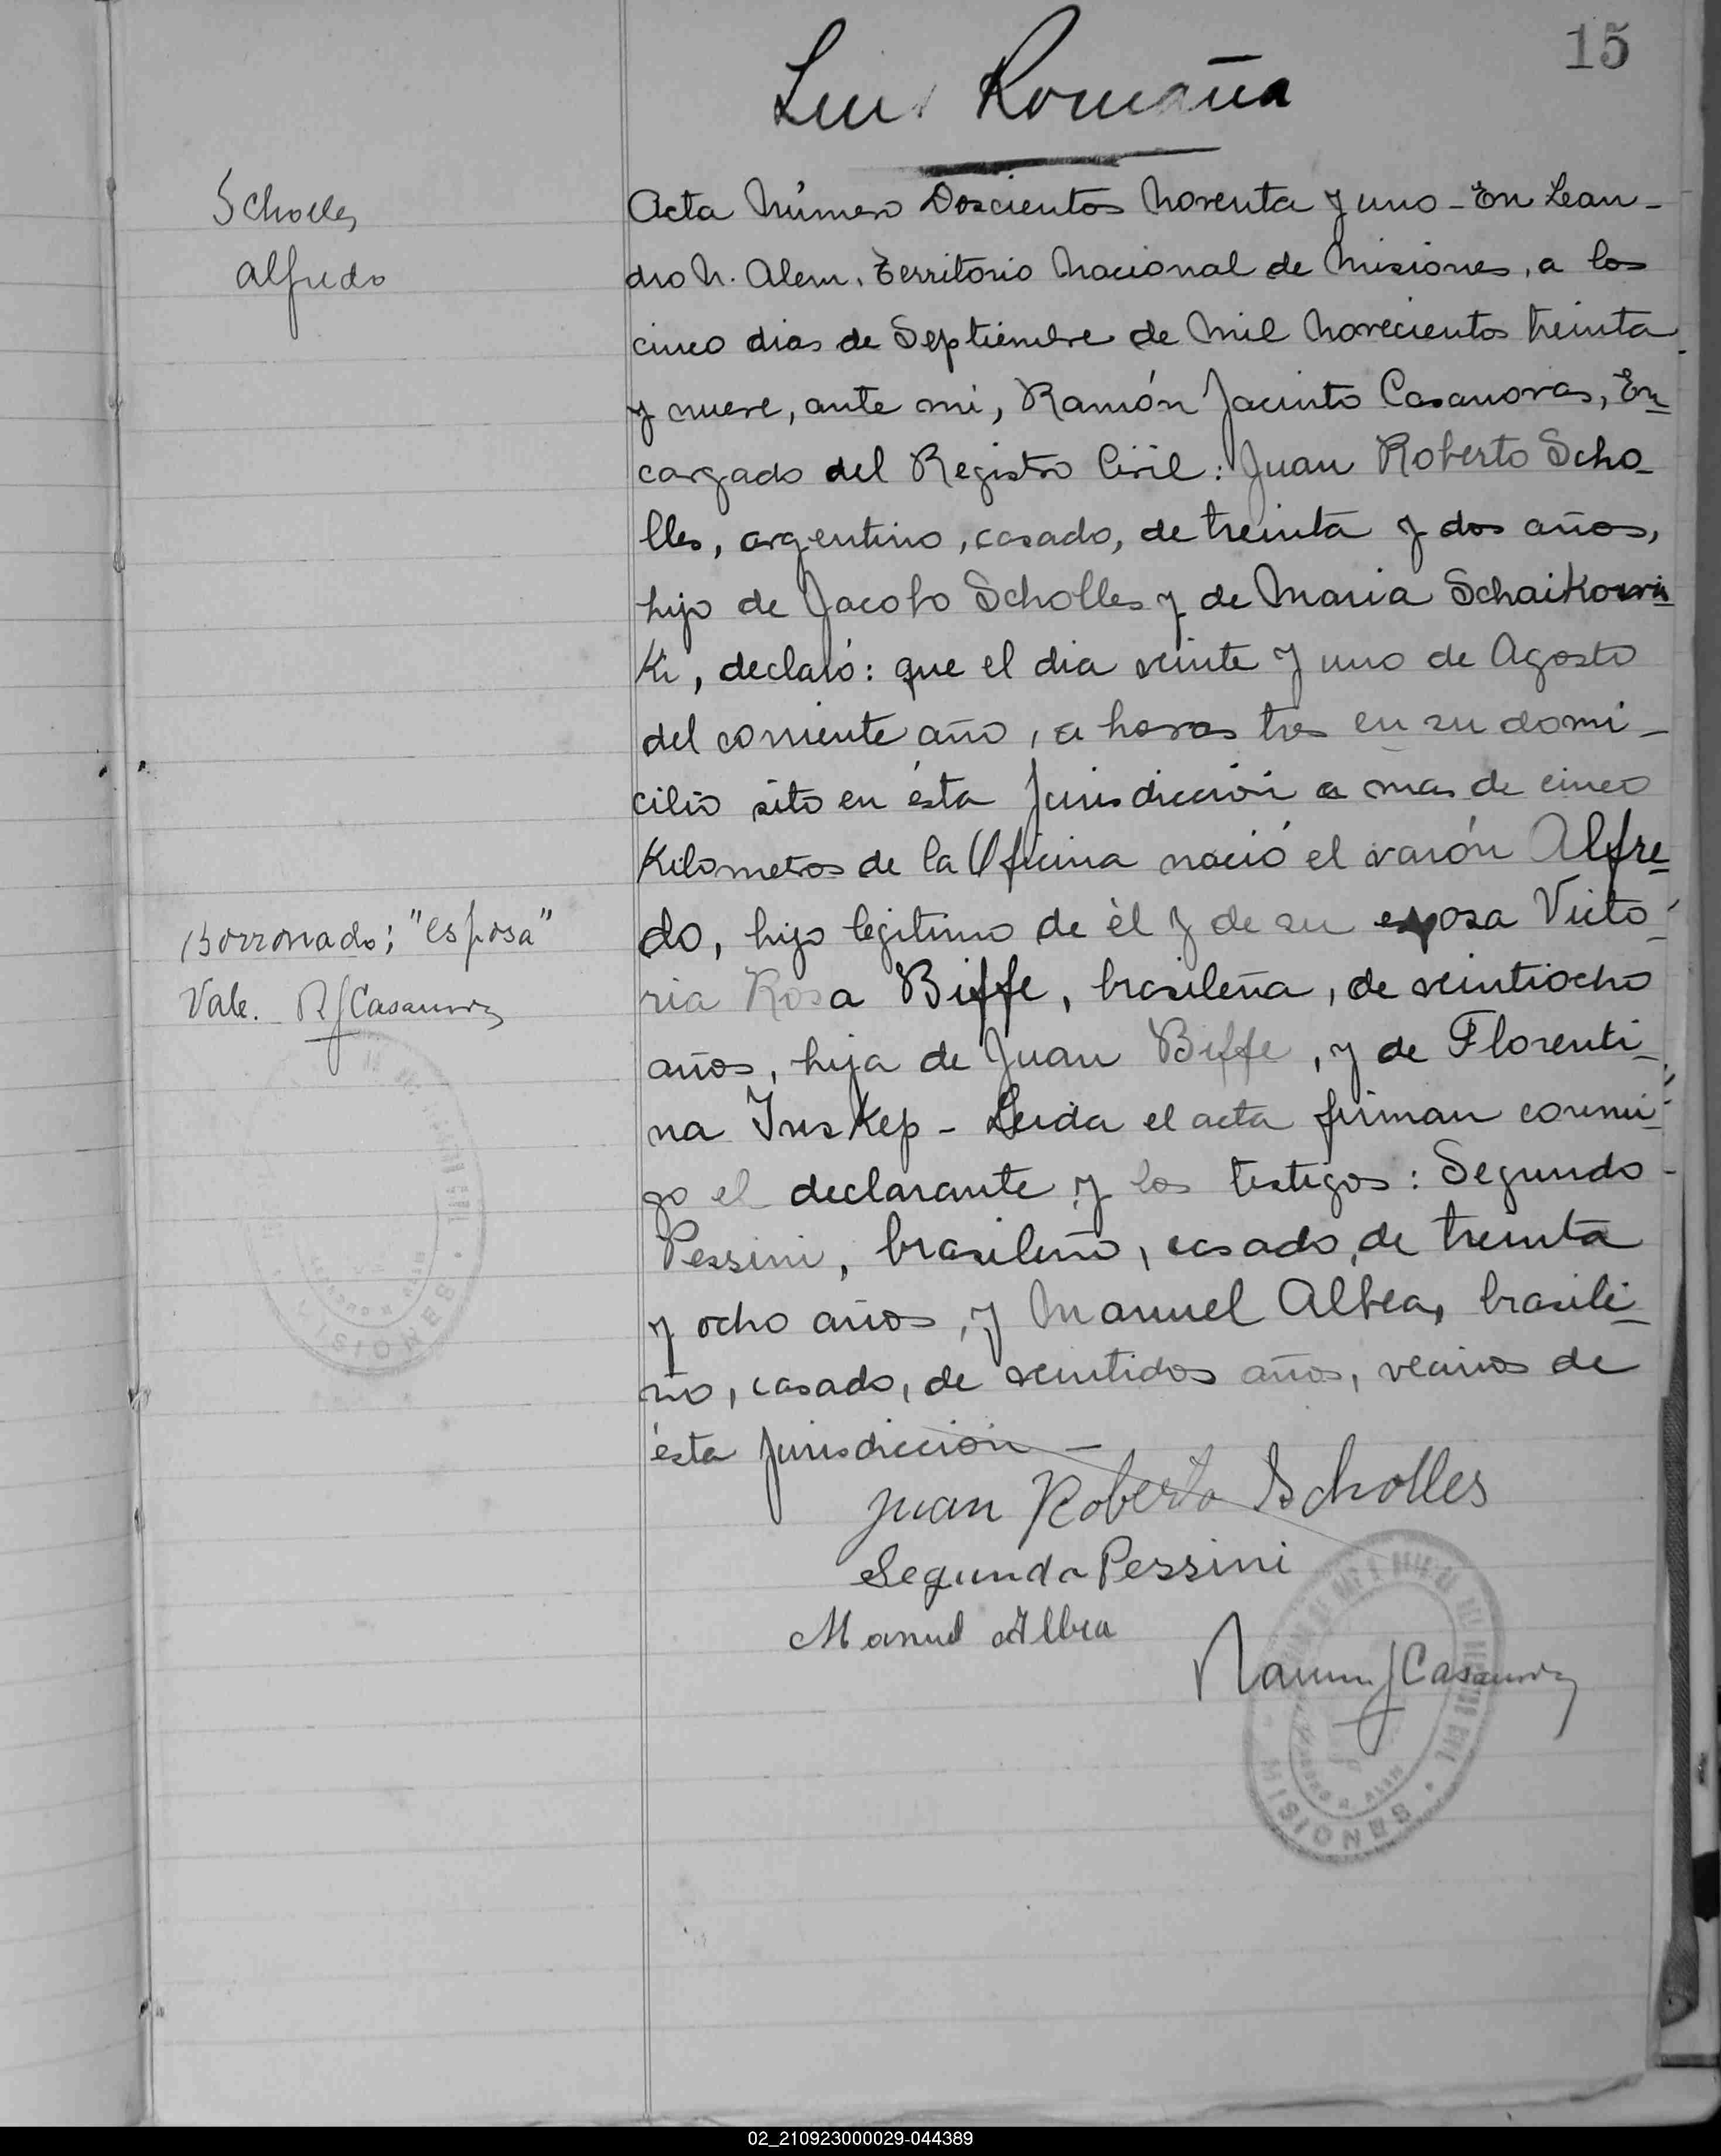 15
Luis Romaña
Scholles
Alfredo
Acta Número Doscientos Noventa y uno - En Lean-
dro N. Alem, Territorio Nacional de Misiones, a los
cinco dias de Septiembre de Mil Novecientos treinta
y nueve, ante mi, Ramón Jacinto Casanovas, En-
cargado del Registro Civil: Juan Roberto Scho-
lles, argentino, casado, de treinta y dos años,
hijo de Jacobo Scholles y de Maria Schaikowis
Ki, declaró: que el dia veinte y uno de Agosto
del corriente año, a horas tres en su domi-
cilio sito en ésta Jurisdicción a mas de cinco
Kilometros de la Oficina nació el varón Alfre-
do, hijo legitimo de él y de su esposa Victo-
ria Rosa Biffe, brasileña, de veintiocho
años, hija de Juan Biffe, y de Florenti-
na Inskep - Leida el acta firman conmi-
go el declarante y los testigos: Segundo
Pessini, brasileño, casado, de treinta
y ocho años, y Manuel Albea, brasile-
ño, casado, de veintidos años, vecinos de
ésta Jurisdicción -
Borronado: "esposa"
Vale. RJCasanovas
Juan Roberto Scholles
Segundo Pessini
Manuel Albea
Ramon J Casanovas
MISIONES
MISIONES
02_210923000029-044389